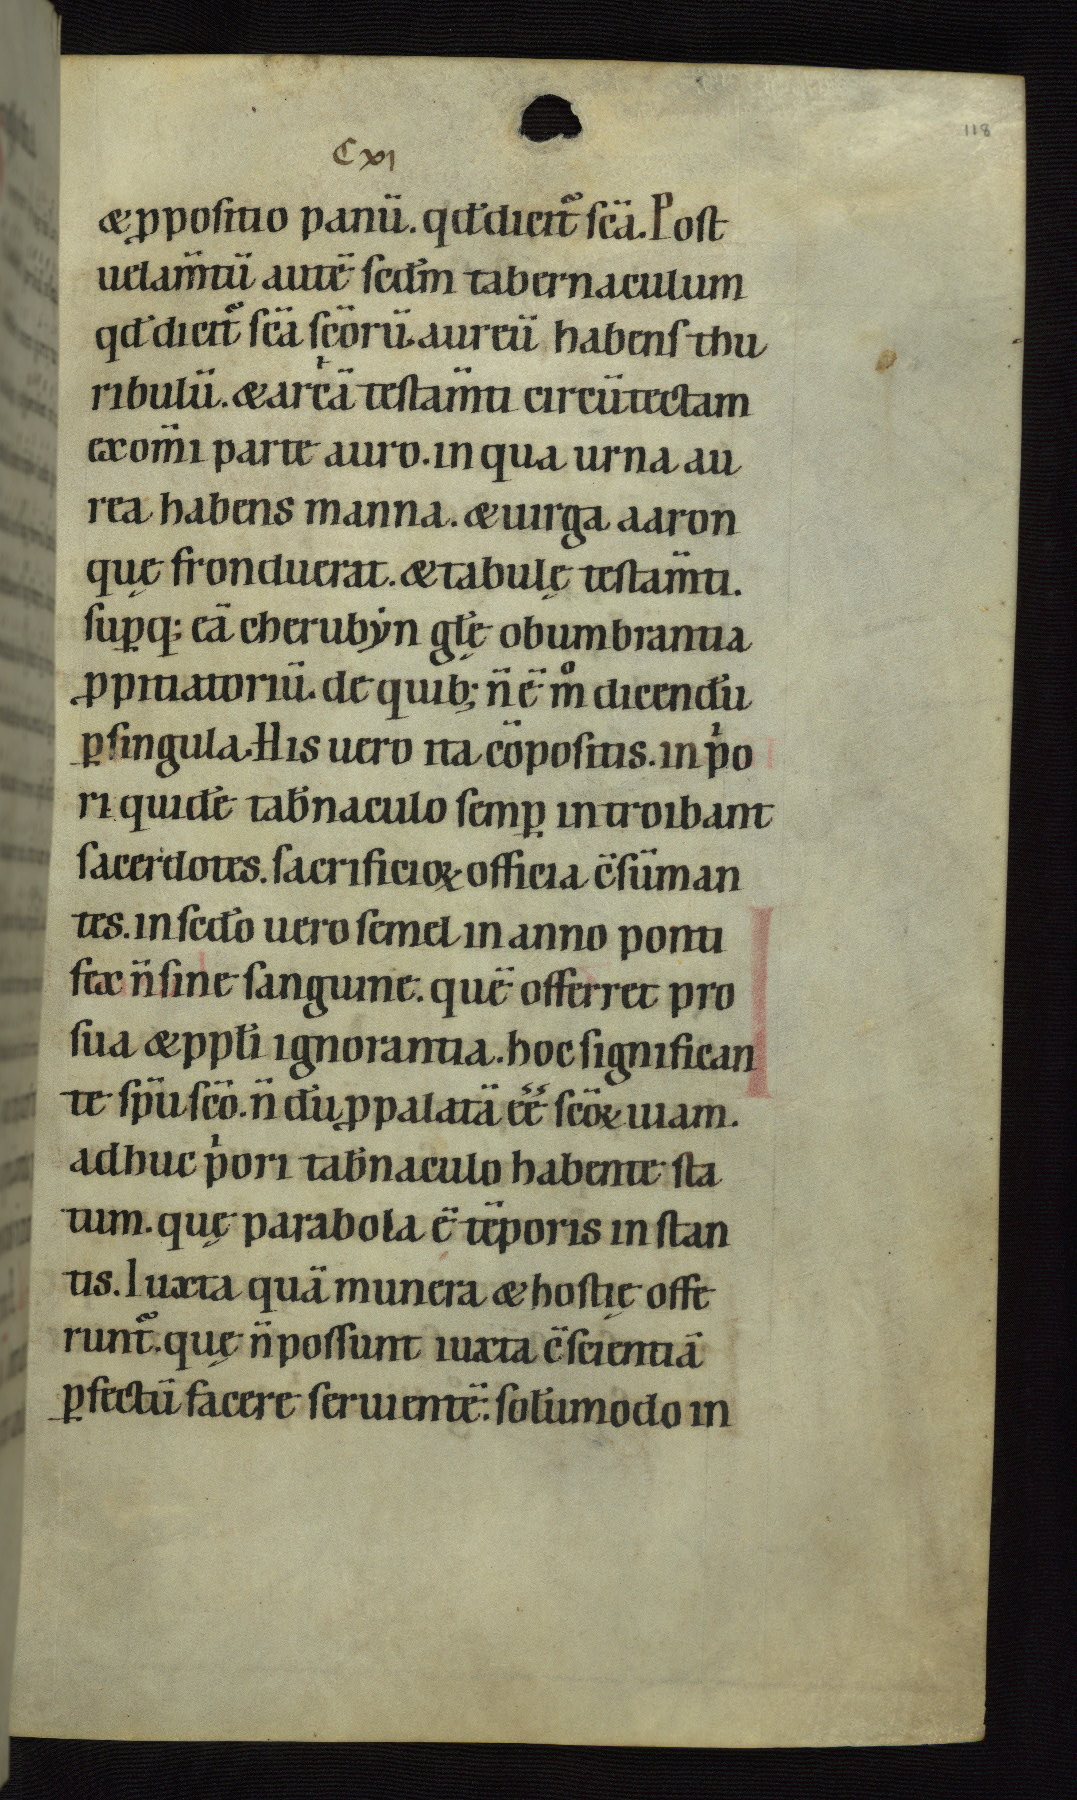 118
Cxı
& ꝓpoſitio panū. qđ dicit᷑ ſc̄a. Poſt
uelam̄tū autē ſcd̄m tabernaculum
qđ dicit᷑ ſc̄a ſc̄orū. aureū habenſ thu
ribulū. & archā teſtam̄ti circūtectam
ex om̄i parte auro. in qua urna au
rea habens manna. & uirga aaron
quę fronduerat. & tabulę teſtam̄ti.
ſuꝑq; eā cherubẏn gł̄ę obumbrantia
ꝓpitiatoriū. de quib; n̄ ē m̊ dicendū
ꝑ ſingula. His uero ita cōpoſitis. in pͥo
ri quidē tab̄naculo ſemꝑ introibant
ſacerdotes. ſacrificioꝝ officia c̄ſūman
tes. in ſcd̄o uero ſemel in anno ponti
fex n̄ ſine ſanguine. quē offerret pro
ſua & ppl̄i ignorantia. hoc ſignifican
te ſpū ſc̄o. n̄dū ꝓpalatā ēē ſc̄oꝝ uiam.
adhuc pͥori tab̄naculo habente ſta
tum. quę parabola ē tēporis inſtan
tis. Iuxta quā munera & hoſtię offe
runt᷑. quę n̄ poſſunt iuxta c̄ſcientiā
ꝑfectū facere ſeruientē. ſolūmodo in